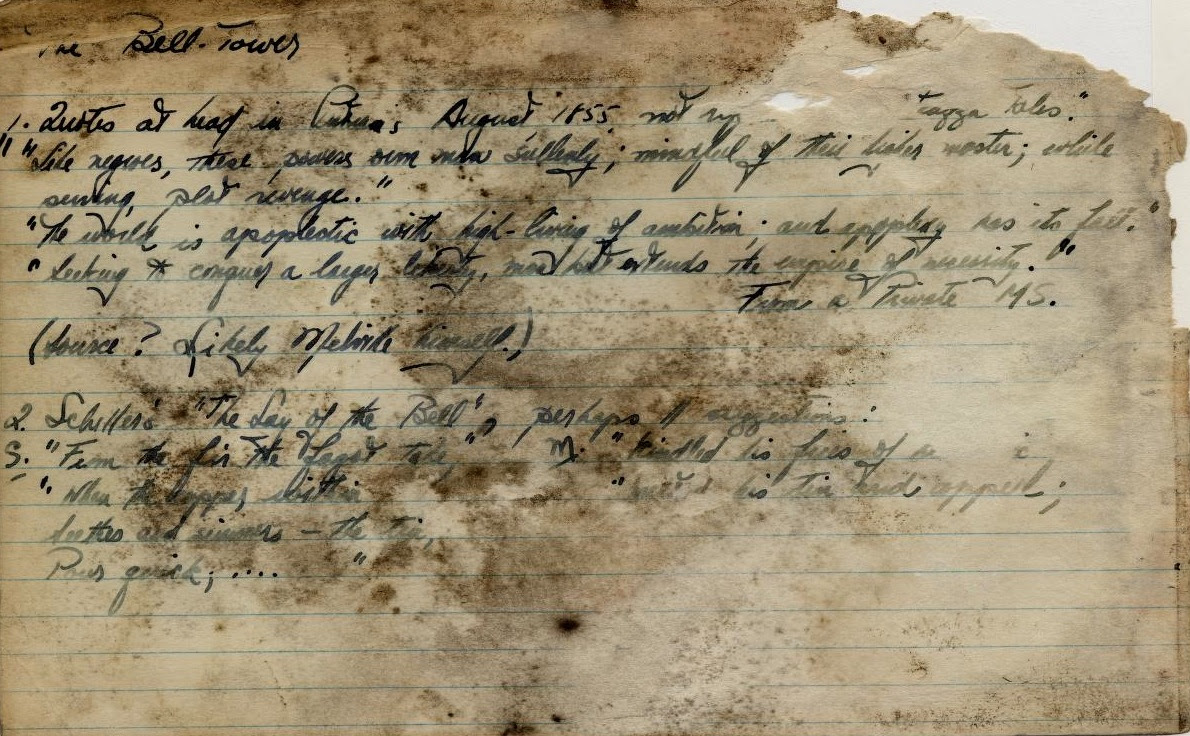 The Bell-Tower
1. Quotes at head in Putnam's August 1855, not Tales."
"Like negroes, these powers own man sullenly; mindful of their higher master; while
serving, plot revenge."
"The world is apoplectic with high-living of ambition; and apoplexy has its fall."
"Seeking to conquer a larger liberty, man but extends the empire of necessity."
From a Private MS.
(Source? Likely Melville himself.)
2. Schiller's "The Lay of the Bell", perhaps suggestions:
S: "From the fir the fagot take," M: "kindled his fires of
"When the copper within his tin and copper";
Seethes and simmers — the tin,
Pour quick; .... "